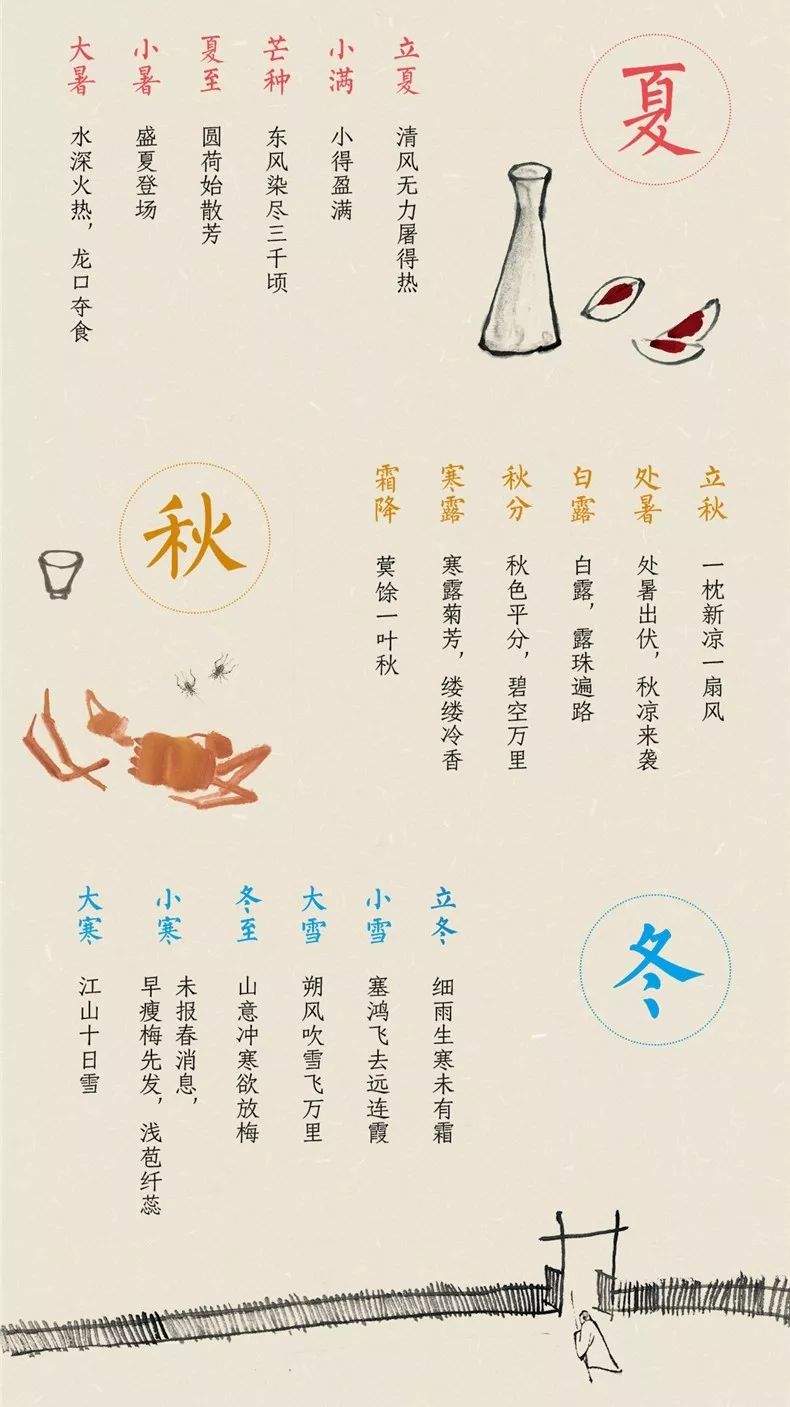 夏
立夏
清风无力屠得热
小满
小得盈满
芒种
东风染尽三千顷
夏至
圆荷始散芳
小暑
盛夏登场
大暑
水深火热，龙口夺食
秋
立秋
一枕新凉一扇风
处暑
处暑出伏，秋凉来袭
白露
白露，露珠遍路
秋分
秋色平分，碧空万里
寒露
寒露菊芳，缕缕冷香
霜降
蓂馀一叶秋
冬
立冬
细雨生寒未有霜
小雪
塞鸿飞去远连霞
大雪
朔风吹雪飞万里
冬至
山意冲寒欲放梅
小寒
未报春消息，
早瘦梅先发，浅苞纤蕊
大寒
江山十日雪